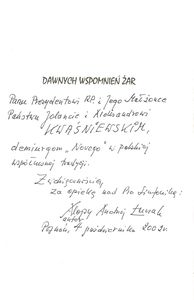 DAWNYCH WSPOMNIEŃ ŻAR
Panu Prezydentowi R.P. i Jego Małżonce
Państwu Jolancie i Aleksandrowi
KWAŚNIEWSKIM,
demiurgom „Nowego" w polskiej
współczesnej tradycji.
Z wdzięcznością,
za opiekę nad Pro Sinfoniką:
Alojzy Andrzej Łuczak
autor
Poznań, 4 października 2003 r.